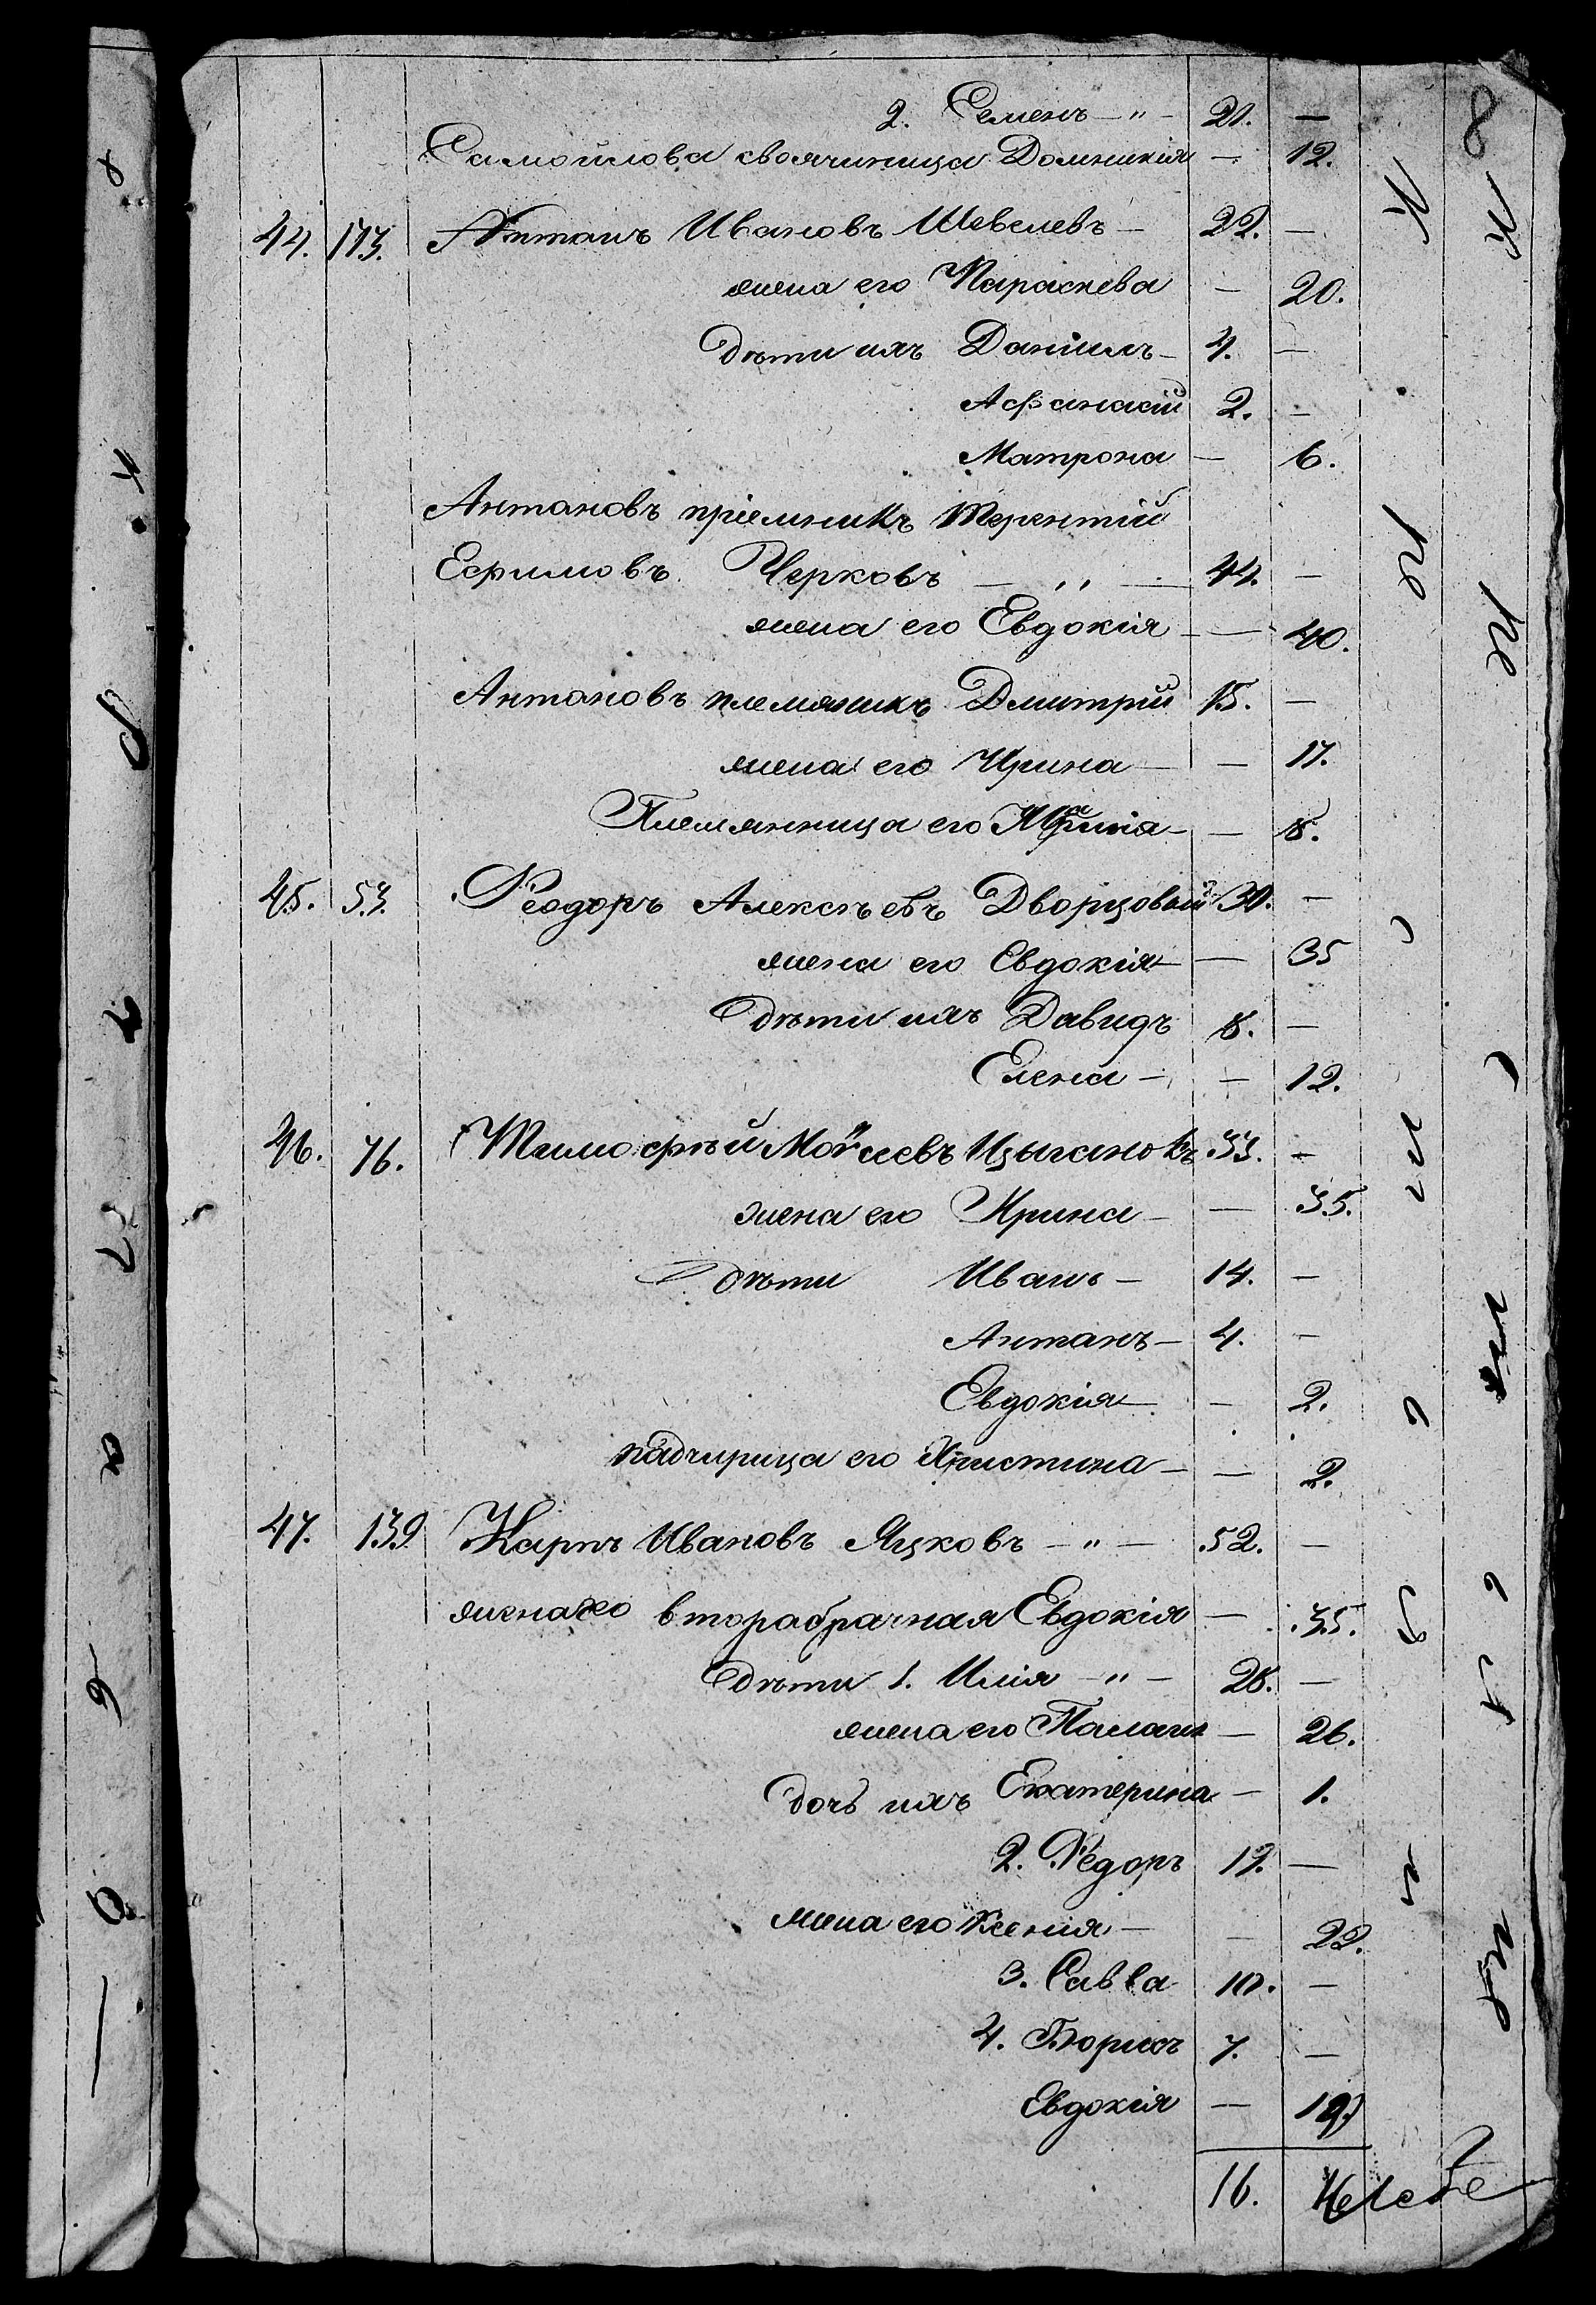 2. Семенъ — " — 21. —
Самойлова своячиница Домникія — 12.
44. 173. Антанъ Ивановъ Шевелевъ — 22. —
жена его Параскева — 20.
Дѣти ихъ Даніилъ — 4. —
Афанасій 2. —
Матрона — 6.
Антановъ пріемникъ Терентій
Ефимовъ Черковъ — " — 44. —
жена его Евдокія — 40.
Антановъ племяникъ Дмитрій 15. —
жена его Ирина — — 17.
Племянница его — 8.
45. 53. Ѳеодоръ Алексѣевъ Дворцовый 30. —
жена его Евдокія — 35
Дѣти ихъ Давидъ 8. —
Елена — — 12.
46. 76. Тимофѣй Моѵсеевъ Цыганокъ 33. —
жена его Ирина — — 35.
Дѣти Иванъ — 14. —
Антанъ — 4. —
Евдокія — — 2.
падчирица его Христина — — 2.
47. 139 Карпъ Ивановъ Яцковъ — " — 52. —
жена его вторабрачная Евдокія — 35.
Дѣти 1. Илія — " — 28. —
жена его — 26.
дочь ихъ Екатерина — 1.
2. Ѳедоръ 19. —
жена его Ксенія — — 22.
3. Савва 10. —
4. Борисъ 7. —
Евдокія — 19
16.
8